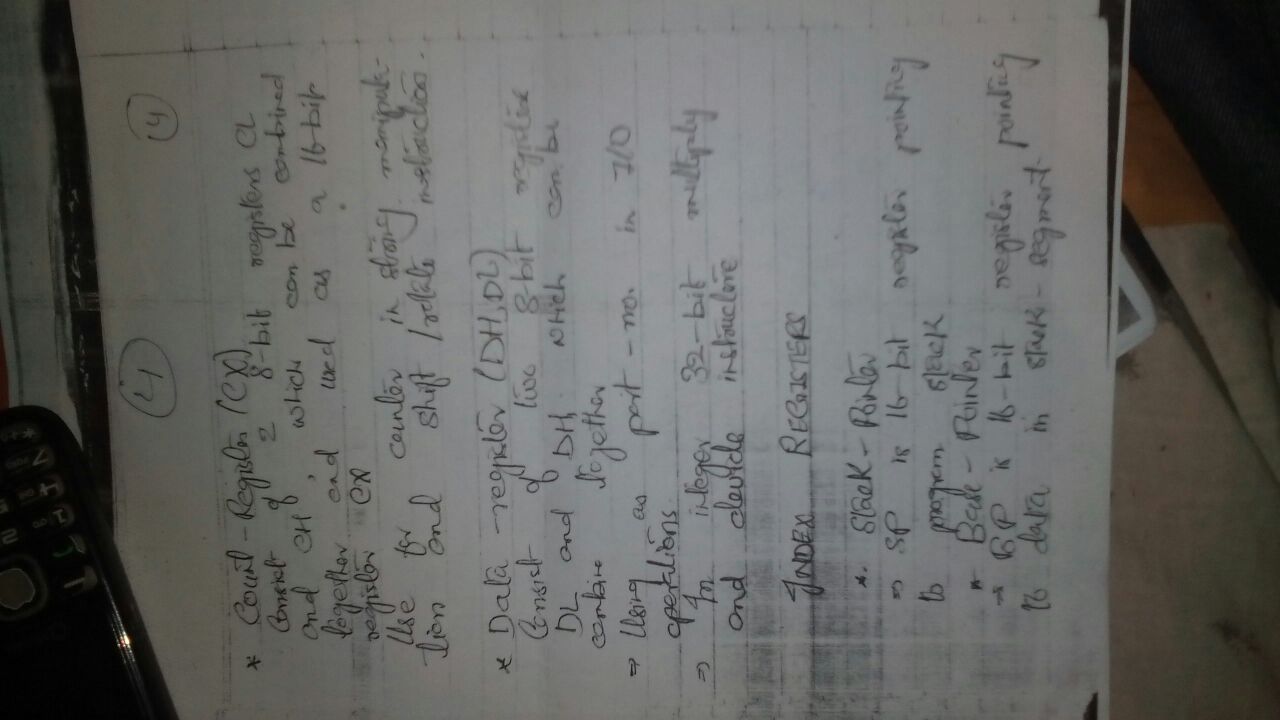 (4) (4)
* Count - Register (CX)
Consist of 2 8-bit registers CL
and CH, which can be combined
together and used as a 16-bit
register CX
Use for counter in string manipula-
tion and shift / rotate instruction.
* Data - register (DH, DL)
Consist of two 8-bit register
DL and DH, which can be
combine together
⇒ Using as port - no. in I/O
operations.
⇒ In integer 32-bit multiply
and devide instructore
INDEX REGISTERS
*. Stack - Pointer
⇒ SP is 16-bit register pointing
to program stack
* Base - Pointer
→ BP is 16-bit register pointing
to data in stack - segment.